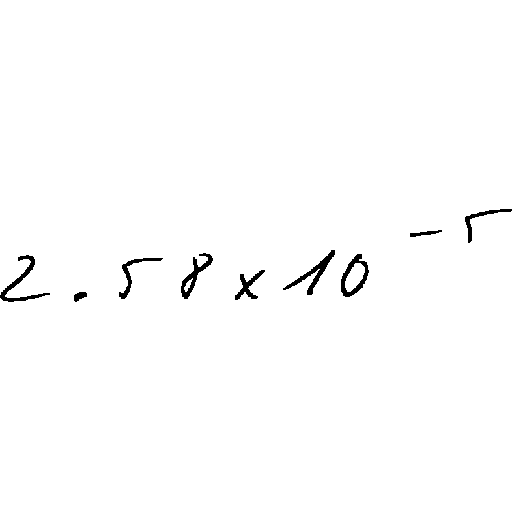 2.58 × 10⁻⁵